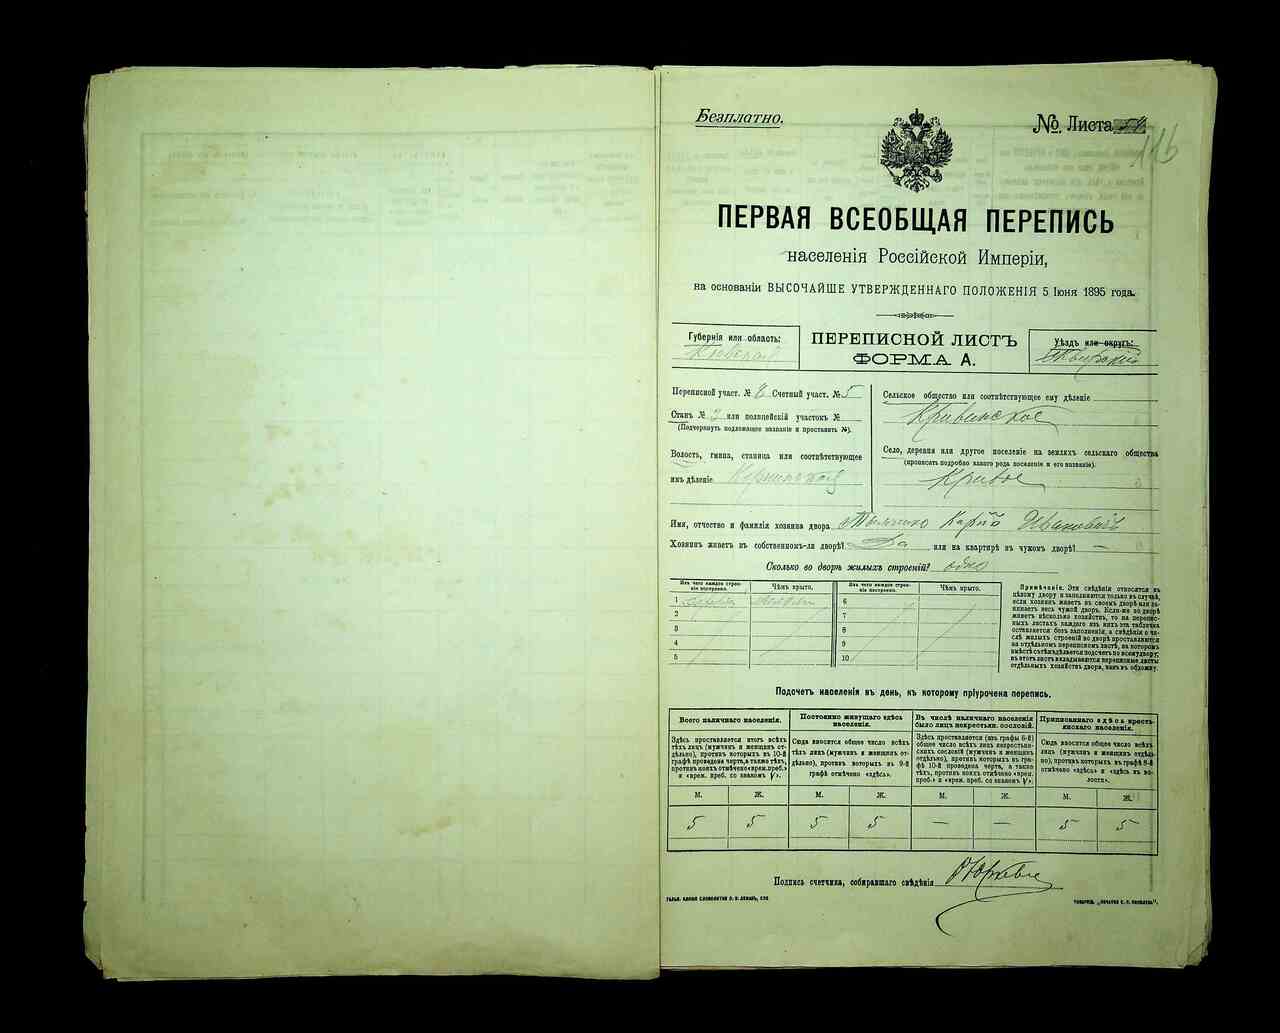 Безплатно.
№ Листа 54
116
ПЕРВАЯ ВСЕОБЩАЯ ПЕРЕПИСЬ
населенія Россійской Имперіи,
на основаніи ВЫСОЧАЙШЕ УТВЕРЖДЕННАГО ПОЛОЖЕНІЯ 5 Іюня 1895 года.
Губернія или область:
Кіевская
ПЕРЕПИСНОЙ ЛИСТЪ
ФОРМА А.
Уѣздъ или округъ:
Переписной участ. № 8 Счетный участ. № 5
Станъ № 3 или полицейскій участокъ №
(Подчеркнуть подлежащее названіе и проставить №).
Волость, гмина, станица или соотвѣтствующее
имъ дѣленіе Корнинская
Сельское общество или соотвѣтствующее ему дѣленіе
Кривинское
Село, деревня или другое поселеніе на земляхъ сельскаго общества
(прописать подробно какого рода поселеніе и его названіе).
Кривое
Имя, отчество и фамилія хозяина двора Карпо Ивановъ
Хозяинъ живетъ въ собственномъ-ли дворѣ? Да или на квартирѣ въ чужомъ дворѣ? —
Сколько во дворѣ жилыхъ строеній? одно
Изъ чего каждое строеніе построено.
Чѣмъ крыто.
Изъ чего каждое строеніе построено.
Чѣмъ крыто.
1
2
3
4
5
6
7
8
9
10
Примѣчаніе. Эти свѣдѣнія относятся къ
цѣлому двору и заполняются только въ случаѣ,
если хозяинъ живетъ въ своемъ дворѣ или занимаетъ
весь чужой дворъ. Если-же во дворѣ
живетъ нѣсколько хозяйствъ, то на переписныхъ
листахъ каждаго изъ нихъ эта табличка
оставляется безъ заполненія, а свѣдѣнія о числѣ
жилыхъ строеній во дворѣ проставляются
на отдѣльномъ переписномъ листѣ, на которомъ
вмѣстѣ съ тѣмъ дѣлается подсчетъ по всему двору;
въ этотъ листъ вкладываются переписные листы
отдѣльныхъ хозяйствъ двора, какъ въ обложку.
Подсчетъ населенія въ день, къ которому пріурочена перепись.
Всего наличнаго населенія.
Постоянно живущаго здѣсь населенія.
Въ числѣ наличнаго населенія было лицъ некрестьян. сословій.
Приписаннаго здѣсь крестьянскаго населенія.
Здѣсь проставляется итогъ всѣхъ
тѣхъ лицъ (мужчинъ и женщинъ отдѣльно),
противъ которыхъ въ 10-й
графѣ проведена черта, а также тѣхъ,
противъ коихъ отмѣчено «врем. преб.»
и «врем. преб. со знакомъ V».
Сюда вносится общее число всѣхъ
тѣхъ лицъ (мужчинъ и женщинъ отдѣльно),
противъ которыхъ въ 9-й
графѣ отмѣчено «здѣсь».
Здѣсь проставляется (изъ графы 6-й)
общее число всѣхъ лицъ некрестьянскихъ
сословій (мужчинъ и женщинъ
отдѣльно), противъ которыхъ въ графѣ
10-й проведена черта, а также
тѣхъ, противъ коихъ отмѣчено «врем.
преб.» и «врем. преб. со знакомъ V».
Сюда вносится общее число всѣхъ
лицъ (мужчинъ и женщинъ отдѣльно),
противъ которыхъ въ графѣ 8-й
отмѣчено «здѣсь» и «здѣсь въ волости».
М. Ж. М. Ж. М. Ж. М. Ж.
5 5 5 5 — — 5 5
Подпись счетчика, собиравшаго свѣдѣнія